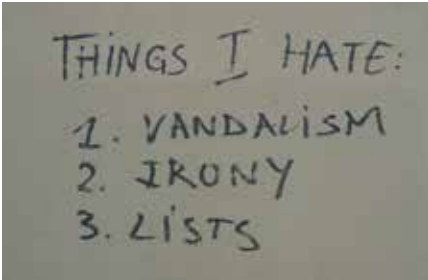 THINGS I HATE:
1. VANDALISM
2. IRONY
3. LISTS